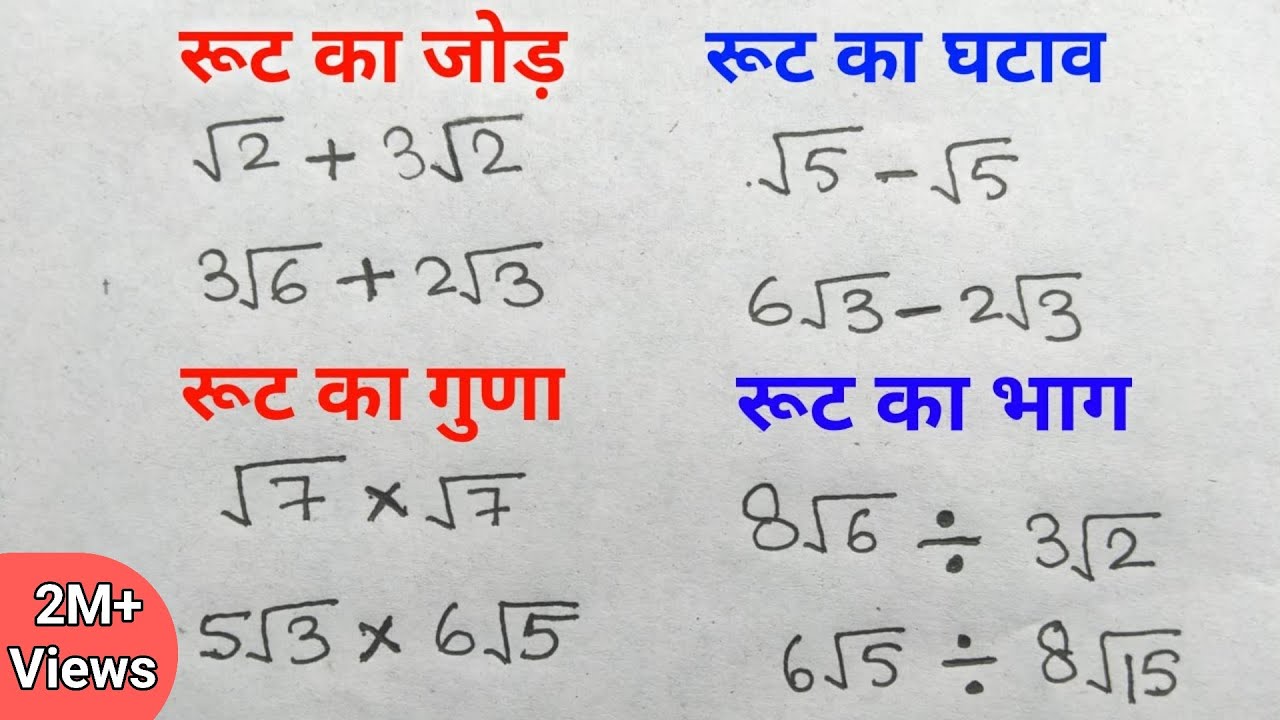 रूट का जोड़
√2 + 3√2
3√6 + 2√3
रूट का घटाव
√5 - √5
6√3 - 2√3
रूट का गुणा
√7 × √7
5√3 × 6√5
रूट का भाग
8√6 ÷ 3√2
6√5 ÷ 8√15
2M+
Views